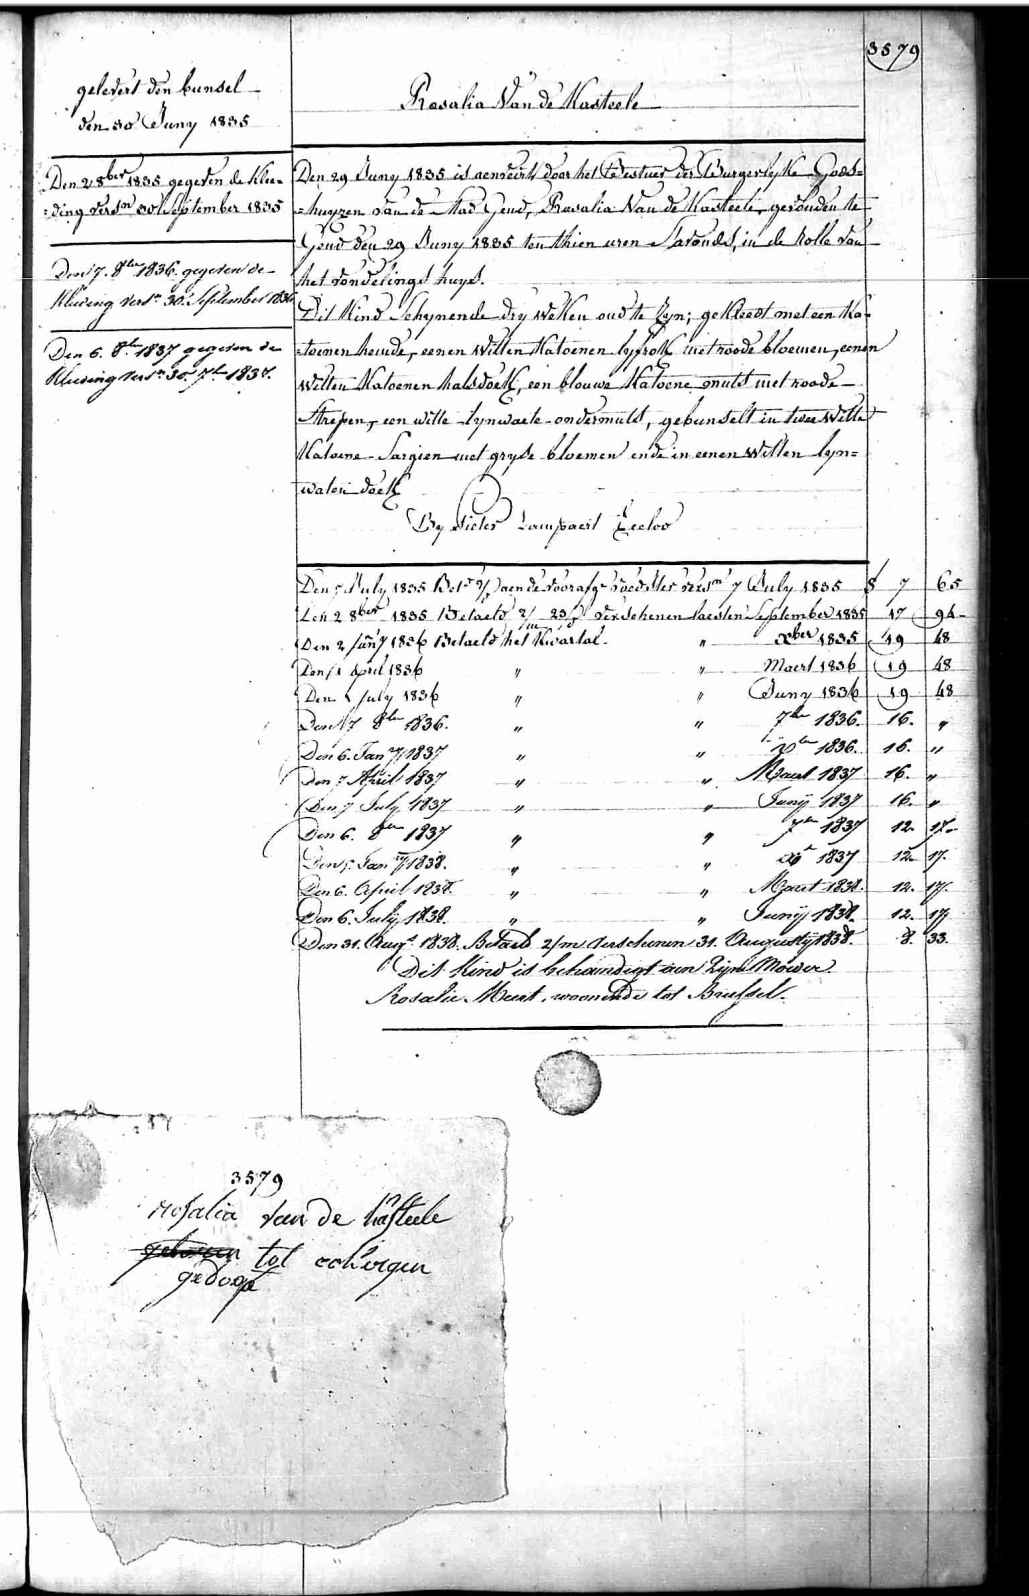 3579
gelevert den bunsel
den 30 Juny 1835
Rosalia Van de Kasteele
Den 2 8ber 1835 gegeven de klee=
=ding versn 30 September 1835
Den 7. 8ber 1836. gegeven de
Kleeding versn 30. September 1836
Den 6. 8br 1837 gegeven de
Kleeding versn 30. 7br 1837.
Den 29 Juny 1835 is aenveirt door het Bestuer der Burgerlyke Gods=
=huyzen van de Stad Gend, Rosalia Van de Kasteele, gevonden te
Gend den 29 Juny 1835 ten thien uren Savonds, in de Rolle van
het vondelings huys.
Dit Kind Schynende dry weken oud te Zyn; gekleedt met een Ka=
=toenen hemde, eenen Witten Katoenen lyfrok met roode bloemen, eenen
Witten Katoenen halsdoek, een blauwe Katoene muts met roode
Strepen, een witte lynwaete ondermuts, gebunselt in twee Witte
Katoene Sargien met gryse bloemen ende in eenen Witten lyn=
waten doek
By Pieter Lampaert Eecloo
Den 7 July 1835 Bet. aen de voorafge voedster versn 7 July 1835 f 7 65
Den 2 8ber 1835 Betaeld 2/m 23/d verschenen laesten September 1835 17 94
Den 2 Jany 1836 Betaeld het Kwartal " Xber 1835 19 48
Den 1 April 1836 " " Maert 1836 19 48
Den 1 July 1836 " " Juny 1836 19 48
Den 7 8br 1836. " " 7br 1836. 16. "
Den 6. Jany 1837 " " Xbr 1836. 16. "
Den 7 April 1837 " " Maert 1837 16. "
Den 7 July 1837 " " Junij 1837 16. "
Den 6. 8br 1837 " " 7br 1837 12. 17.
Den 5. Jany 1838. " " Xbr 1837 12. 17.
Den 6. April 1838. " " Maert 1838. 12. 17.
Den 6. July 1838. " " Junij 1838. 12. 17
Den 31. Augt 1838. Betaeld 2/m verschenen 31. Augustij 1838. 8. 33.
Dit Kind is behandigt aen Zijne Moeder
Rosalie Meert, woonende tot Brussel.
3579
rosalia van de kasteele
geboren tot
gedoopt